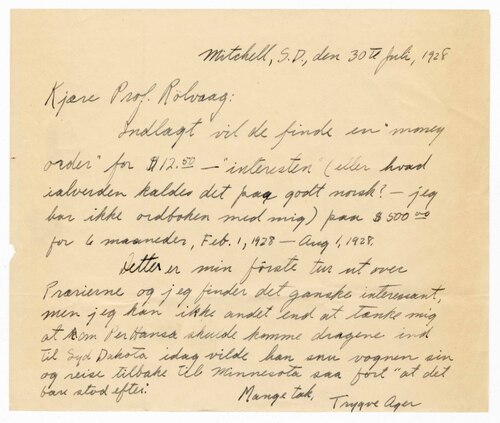 Mitchell, S.D., den 30te Juli, 1928
Kjære Prof. Rölvaag:
Indlagt vil de finde en "money
order" for $12.00 — "interesten" (eller hvad
ialverden kaldes det paa godt norsk? — jeg
har ikke ordboken med mig) paa $500.00
for 6 maaneder, Feb. 1, 1928 — Aug 1, 1928.
Dette er min förste tur ut over
Prærierne og jeg finder det ganske interessant,
men jeg kan ikke andet end at tænke mig
at om Per Hansa skulde komme dragene ind
til Syd Dakota idag vilde han snu vognen sin
og reise tilbake til Minnesota saa fort "at det
bare stod efter."
Mange tak,
Trygve Ager